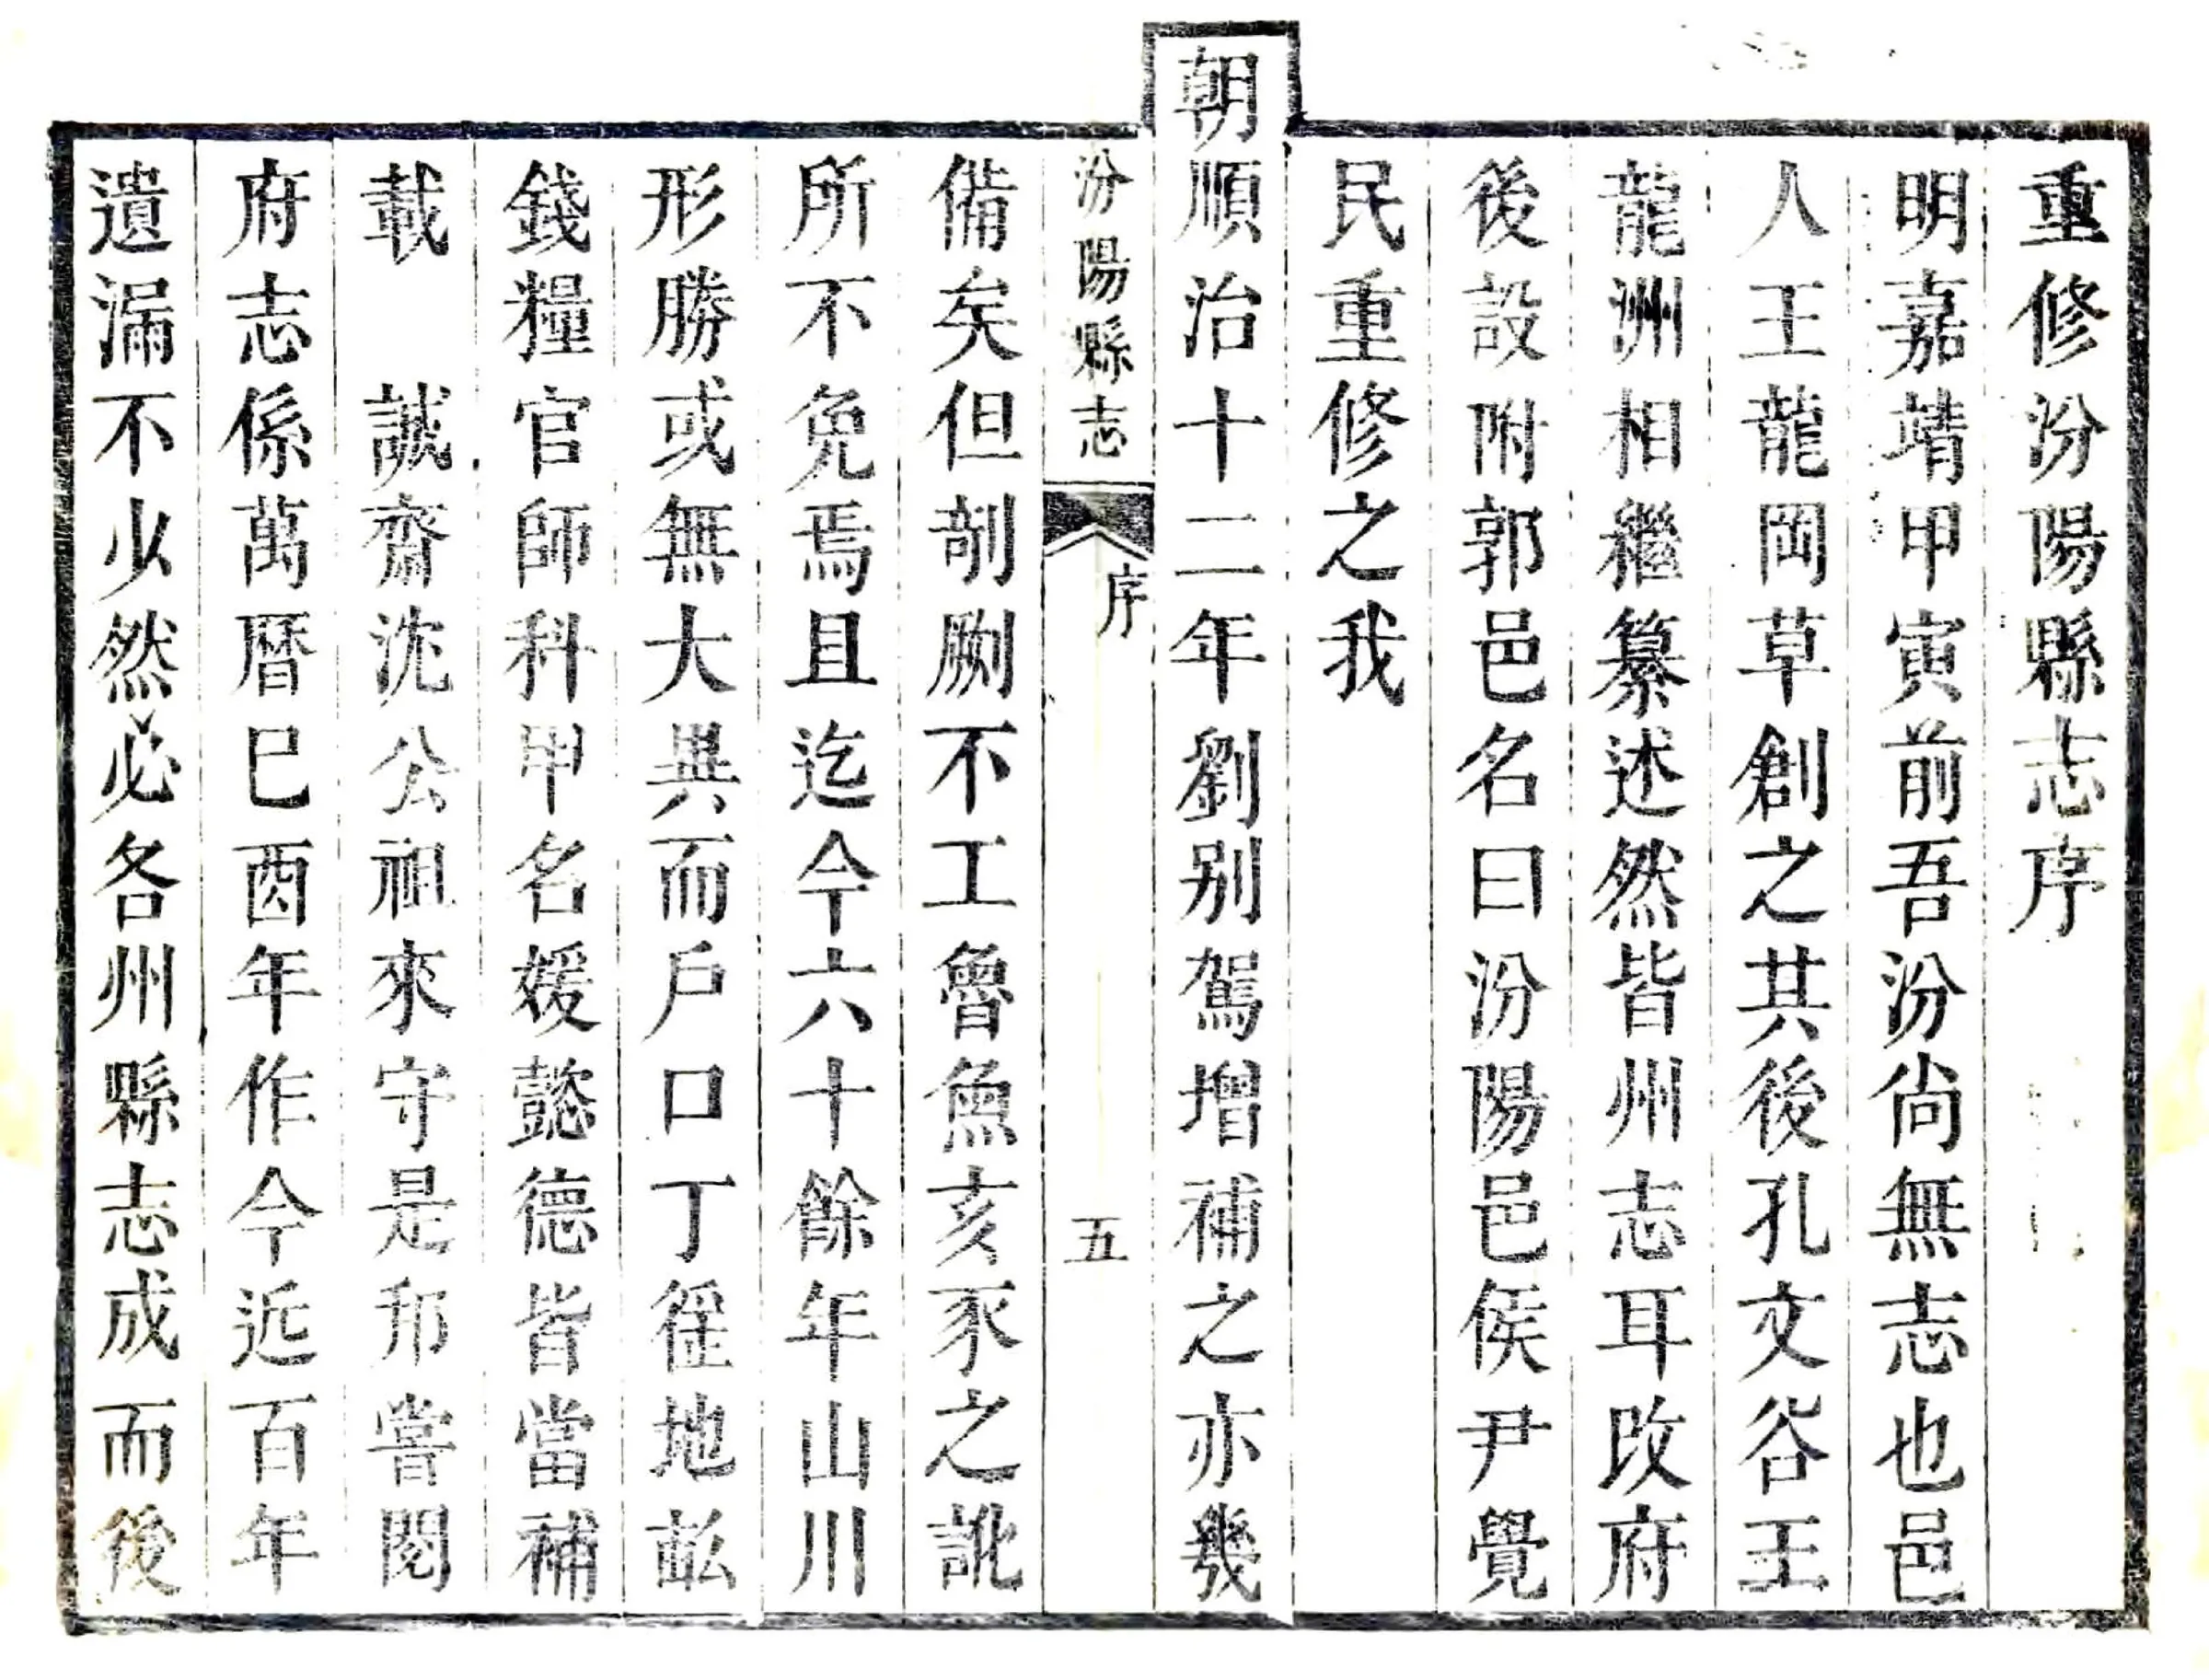 重修汾陽縣志序
明嘉靖甲寅前吾汾尙無志也邑
人王龍岡草創之其後孔文谷王
龍洲相繼纂述然皆州志耳改府
後設附郭邑名曰汾陽邑侯尹覺
民重修之我
朝順治十二年劉别駕增補之亦幾
汾陽縣志
序
五
備矣但剞劂不工魯魚亥豕之訛
所不免焉且迄今六十餘年山川
形勝或無大異而戶口丁徭地畝
錢糧官師科甲名媛懿德皆當補
載　誠齋沈公祖來守是邦嘗閱
府志係萬曆巳酉年作今近百年
遺漏不少然必各州縣志成而後